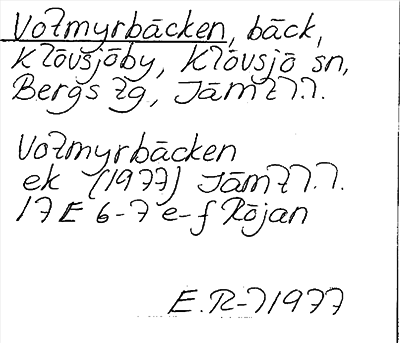 Votmyrbäcken, bäck,
Klövsjöby, Klövsjö sn,
Bergs tg, Jämtl.l.
Votmyrbäcken
ek (1977) Jämtl.l.
17 E 6-7 e-f Röjan
E.R-l 1977